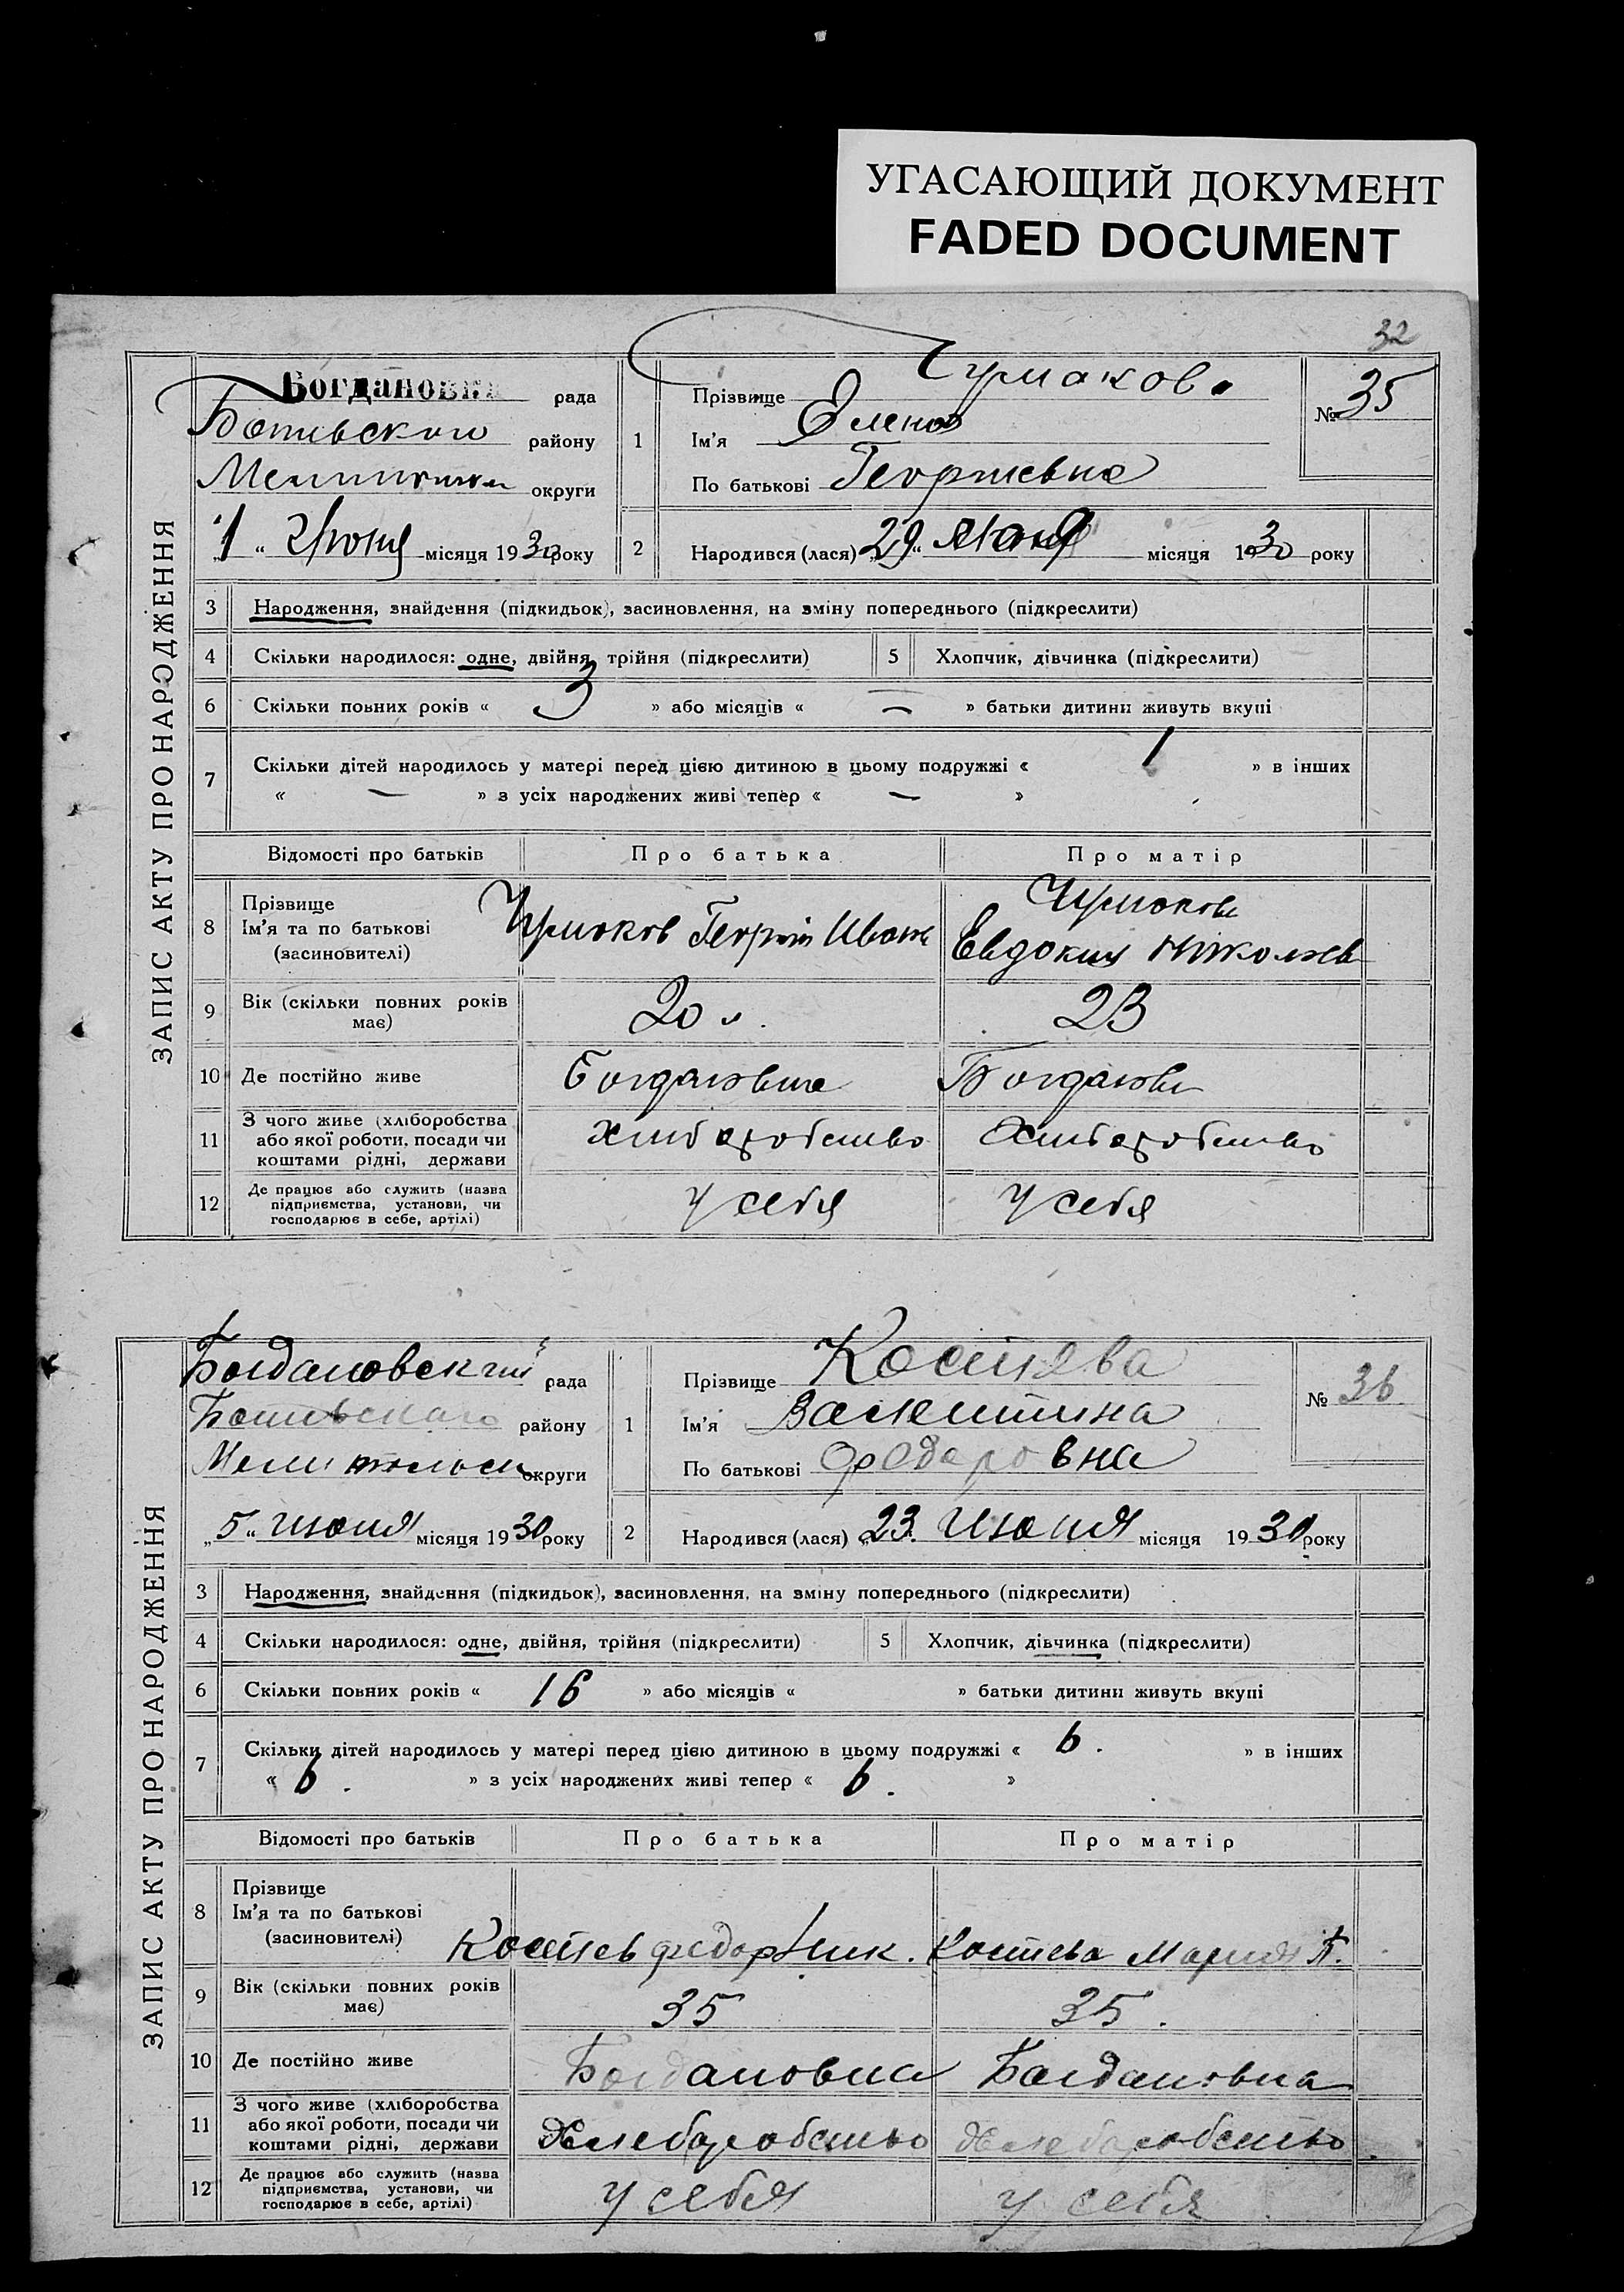 УГАСАЮЩИЙ ДОКУМЕНТ
FADED DOCUMENT
32
ЗАПИС АКТУ ПРО НАРОДЖЕННЯ
Богдановка рада
района району
округи
"1" Июня місяця 1930 року
1
Прізвище Чурмаков.
Ім'я Елена
По батькові Георгиевна
№ 35
2 Народився (лася) „29“ місяця 1930 року
3 Народження, знайдення (підкидьок), засиновлення, на зміну попереднього (підкреслити)
4 Скільки народилося: одне, двійня, трійня (підкреслити) 5 Хлопчик, дівчинка (підкреслити)
6 Скільки повних років « 3 » або місяців « — » батьки дитини живуть вкупі
7 Скільки дітей народилось у матері перед цією дитиною в цьому подружжі « 1 » в інших
« — » з усіх народжених живі тепер « — »
Відомості про батьків Про батька Про матір
8 Прізвище
Ім'я та по батькові
(засиновителі)
Чурмаков Георгий Иван
Чурмакова
Евдокия Николаев
9 Вік (скільки повних років
має)
20 23
10 Де постійно живе Богдановка Богдановк
11 З чого живе (хліборобства
або якої роботи, посади чи
коштами рідні, держави
Хлиборобство Хлиборобство
12 Де працює або служить (назва
підприємства, установи, чи
господарює в себе, артілі)
у себя у себя
ЗАПИС АКТУ ПРО НАРОДЖЕННЯ
Богдановский рада
району
округи
„5“ Июня місяця 1930 року
1
Прізвище Костева
Ім'я Валентина
По батькові Федаровна
№ 36
2 Народився (лася) „23. Июня місяця 1930 року
3 Народження, знайдення (підкидьок), засиновлення, на зміну попереднього (підкреслити)
4 Скільки народилося: одне, двійня, трійня (підкреслити) 5 Хлопчик, дівчинка (підкреслити)
6 Скільки повних років « 16 » або місяців « » батьки дитини живуть вкупі
7 Скільки дітей народилось у матері перед цією дитиною в цьому подружжі « 6. » в інших
« 6. » з усіх народжених живі тепер « 6. »
Відомості про батьків Про батька Про матір
8 Прізвище
Ім'я та по батькові
(засиновителі)
Костев Федор Ник. Костева Мария П.
9 Вік (скільки повних років
має)
35 35.
10 Де постійно живе Богдановка Богдановка
11 З чого живе (хліборобства
або якої роботи, посади чи
коштами рідні, держави
Хлебаробство Хлебаробство
12 Де працює або служить (назва
підприємства, установи, чи
господарює в себе, артілі)
у себя у себя